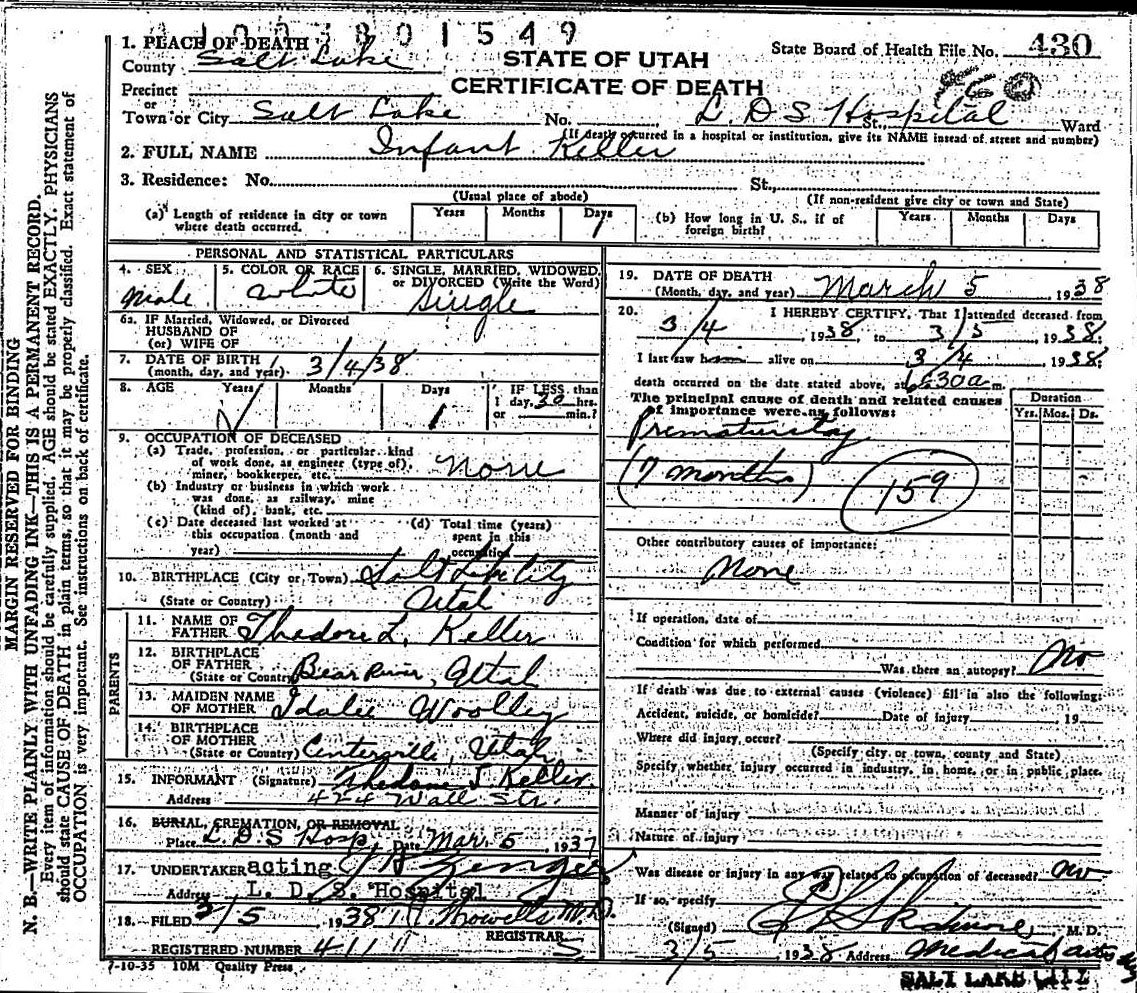 A1003801549
1. PLACE OF DEATH
County Salt Lake
STATE OF UTAH
CERTIFICATE OF DEATH
State Board of Health File No. 430
860
Precinct
or
Town or City Salt Lake No. L D S Hospital St., Ward
(If death occurred in a hospital or institution, give its NAME insead of street and number)
2. FULL NAME Infant Keller
3. Residence: No. St.,
(Usual place of abode)
(If non-resident give city or town and State)
(a) Length of residence in city or town where death occurred. Years Months Days 1
(b) How long in U. S., if of foreign birth? Years Months Days
PERSONAL AND STATISTICAL PARTICULARS
4. SEX male
5. COLOR OR RACE white
6. SINGLE, MARRIED, WIDOWED, or DIVORCED (Write the Word) Single
6a. IF Married, Widowed, or Divorced
HUSBAND OF
(or) WIFE OF
7. DATE OF BIRTH
(month, day, and year) 3/4/38
8. AGE Years Months Days 1
IF LESS than
1 day, hrs.
or min.?
9. OCCUPATION OF DECEASED
(a) Trade, profession, or particular kind
of work done, as engineer (type of),
miner, bookkeeper, etc. none
(b) Industry or business in which work
was done, as railway, mine
(kind of), bank, etc.
(c) Date deceased last worked at
this occupation (month and
year)
(d) Total time (years)
spent in this
occupation
10. BIRTHPLACE (City or Town) Salt Lake City
(State or Country) Utah
PARENTS
11. NAME OF
FATHER Thedore L. Keller
12. BIRTHPLACE
OF FATHER
(State or Country) Bear River, Utah
13. MAIDEN NAME
OF MOTHER Idalee Woolley
14. BIRTHPLACE
OF MOTHER
(State or Country) Centerville, Utah
15. INFORMANT (Signature) Thedore L Keller
Address 424 Wall Str.
16. BURIAL, CREMATION, OR REMOVAL
Place L.D.S Hosp. Date Mar. 5 1937
17. UNDERTAKER acting
Address L. D. S. Hospital
18. FILED 3/5 1938 M.D.
REGISTRAR
REGISTERED NUMBER 411
7-10-35 10M Quality Press
19. DATE OF DEATH
(Month, day, and year) March 5, 1938
20. I HEREBY CERTIFY, That I attended deceased from
3/4, 1938, to 3/5, 1938;
I last saw h alive on 3/4 1938;
death occurred on the date stated above, at 6:30a m.
The principal cause of death and related causes
of importance were as follows:
Duration
Yrs. Mos. Ds.
Prematurity
(7 months)
159
Other contributory causes of importance:
None
If operation, date of
Condition for which performed
Was there an autopsy? No
If death was due to external causes (violence) fill in also the following:
Accident, suicide, or homicide? Date of injury , 19
Where did injury occur?
(Specify city or town, county and State)
Specify whether injury occurred in industry, in home, or in public place.
Manner of injury
Nature of injury
Was disease or injury in any way related to occupation of deceased? no
If so, specify
(Signed) Skidmore, M. D.
3/5, 1938 Address Medical Arts
SALT LAKE CITY
MARGIN RESERVED FOR BINDING
N. B.—WRITE PLAINLY WITH UNFADING INK—THIS IS A PERMANENT RECORD.
Every item of information should be carefully supplied. AGE should be stated EXACTLY. PHYSICIANS
should state CAUSE OF DEATH in plain terms, so that it may be properly classified. Exact statement of
OCCUPATION is very important. See instructions on back of certificate.